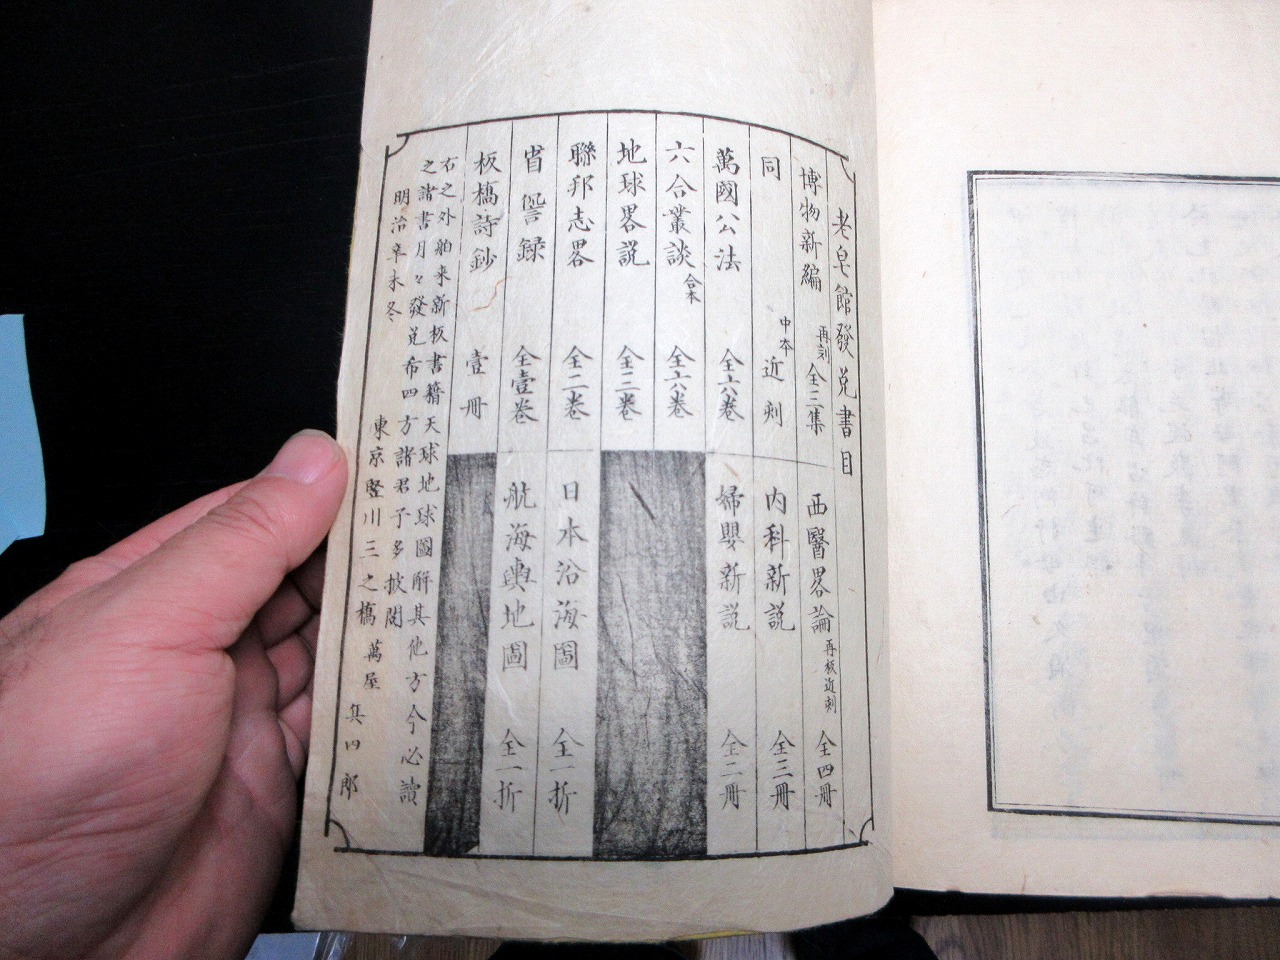 老皂館發兌書目
博物新編 再刻 全三集
西醫畧論 再板近刻 全四冊
同 中本 近刻
内科新説 全三冊
萬國公法 全六巻
婦嬰新説 全二冊
六合叢談 合本 全六巻
地球畧説 全三巻
聯邦志畧 全二巻
日本沿海圖 全一折
省諐録 全壹巻
航海輿地圖 全一折
板橋詩鈔 壹冊
右之外舶来新板書籍天球地球圖解其他方今必讀
之諸書月々發兌布四方諸君子多披閲
明治辛未冬
東京竪川三之橋 萬屋 兵四郎